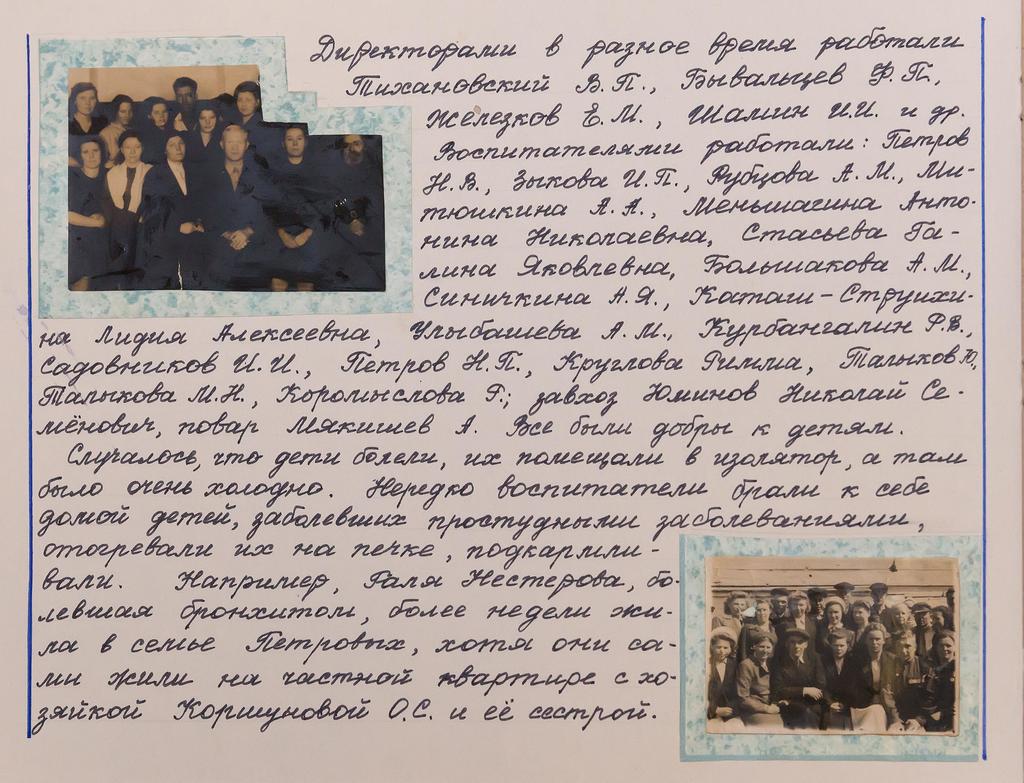 Директорами в разное время работали
Тихановский В.П., Бывальцев Ф.П.,
Железков Е.М., Шамин И.И. и др.
Воспитателями работали: Петров
Н.В., Зыкова И.П., Рубцова А.М., Ми-
тюшкина А.А., Меньшагина Анто-
нина Николаевна, Стасьева Га-
лина Яковлевна, Большакова А.М.,
Синичкина А.Я., Каташ-Струихи-
на Лидия Алексеевна, Улыбашева А.М., Курбангалин Р.В.,
Садовников И.И., Петров Н.П., Круглова Римма, Талыков Ю.,
Талыкова М.Н., Коромыслова Р.; завхоз Юминов Николай Се-
мёнович, повар Мякишев А. Все были добры к детям.
Случалось, что дети болели, их помещали в изолятор, а там
было очень холодно. Нередко воспитатели брали к себе
домой детей, заболевших простудными заболеваниями,
отогревали их на печке, подкармли-
вали. Например, Галя Нестерова, бо-
левшая бронхитом, более недели жи-
ла в семье Петровых, хотя они са-
ми жили на частной квартире с хо-
зяйкой Коршуновой О.С. и её сестрой.